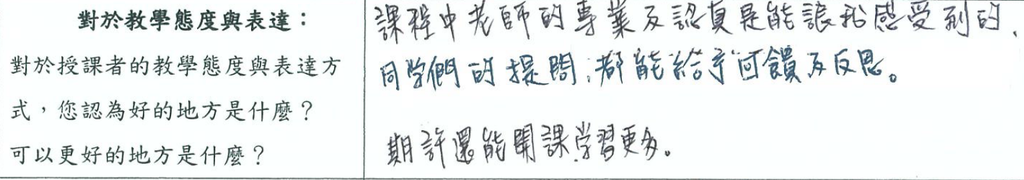 對於教學態度與表達：
對於授課者的教學態度與表達方
式，您認為好的地方是什麼？
可以更好的地方是什麼？
課程中老師的專業及認真是能讓我感受到的，
同学們的提問，都能給予回饋及反思。
期許還能開課學習更多。